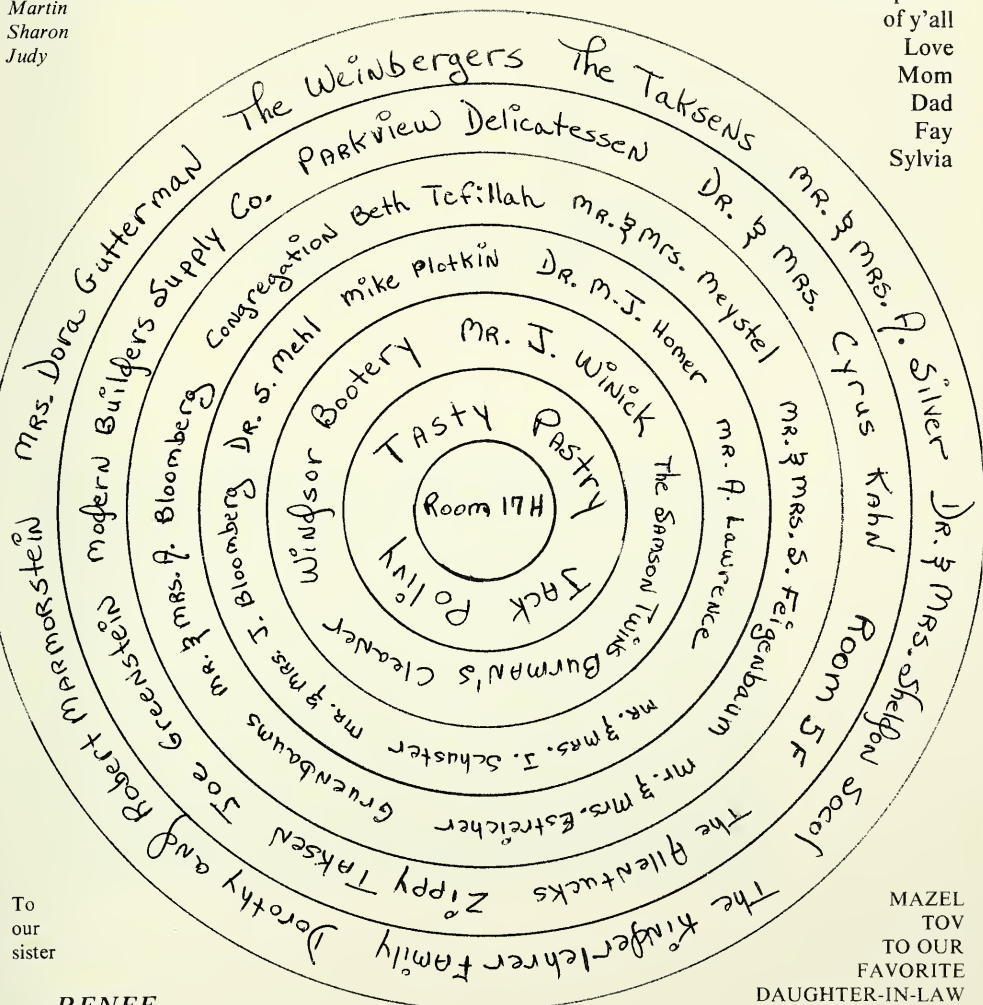 Martin
Sharon
Judy
of y'all
Love
Mom
Dad
Fay
Sylvia
The Weinbergers
The Taksens
MR. & MRS. A. Silver
DR. & MRS. Sheldon Socol
The Kinderlehrer Family
Dorothy and Robert MARMORSTEIN
MRS. Dora Gutterman
PARKVIEW Delicatessen
DR. & MRS. Cyrus Kahn
Room 5F
The Allentucks
Zippy Taksen
Joe Greenstein
Modern Builders Supply Co.
Congregation Beth Tefillah
MR. & Mrs. Meystel
MR. & MRS. S. Feigenbaum
Mr. & Mrs. Estreicher
Gruenbaums
MR. & MRS. A. Bloomberg
DR. S. Mehl
Mike Plotkin
DR. M.J. Homer
MR. A. Lawrence
MR. & MRS. I. Schuster
MR. & MRS. J. Bloomberg
Windsor Bootery
MR. J. Winick
The SAMSON TWINS
Burman's Cleaner
TASTY PASTRY
JACK Polivy
Room 17H
To
our
sister
RENEE
MAZEL
TOV
TO OUR
FAVORITE
DAUGHTER-IN-LAW